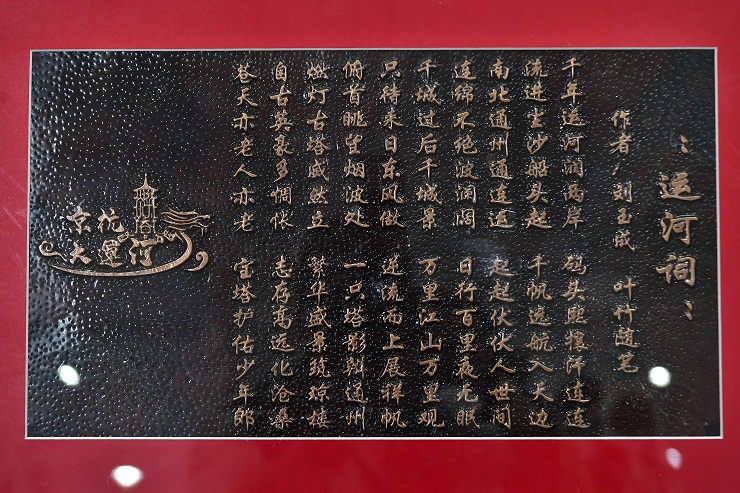 ：运河词：
作者/刘玉成 叶竹随笔
千年运河润两岸 码头熙攘浑连连
流进尘沙船头起 千帆远航入天边
南北通州通连运 起起伏伏人世间
连绵不绝波澜阔 日行百里夜无眠
千城过后千城景 万里江山万里观
只待来日东风做 逆流而上展祥帆
俯首眺望烟波处 一只塔影到通州
燃灯古塔威然立 繁华盛景筑琼楼
自古英豪多惆怅 志存高远化沧桑
苍天亦老人亦老 宝塔护佑少年郎
京杭
大運河